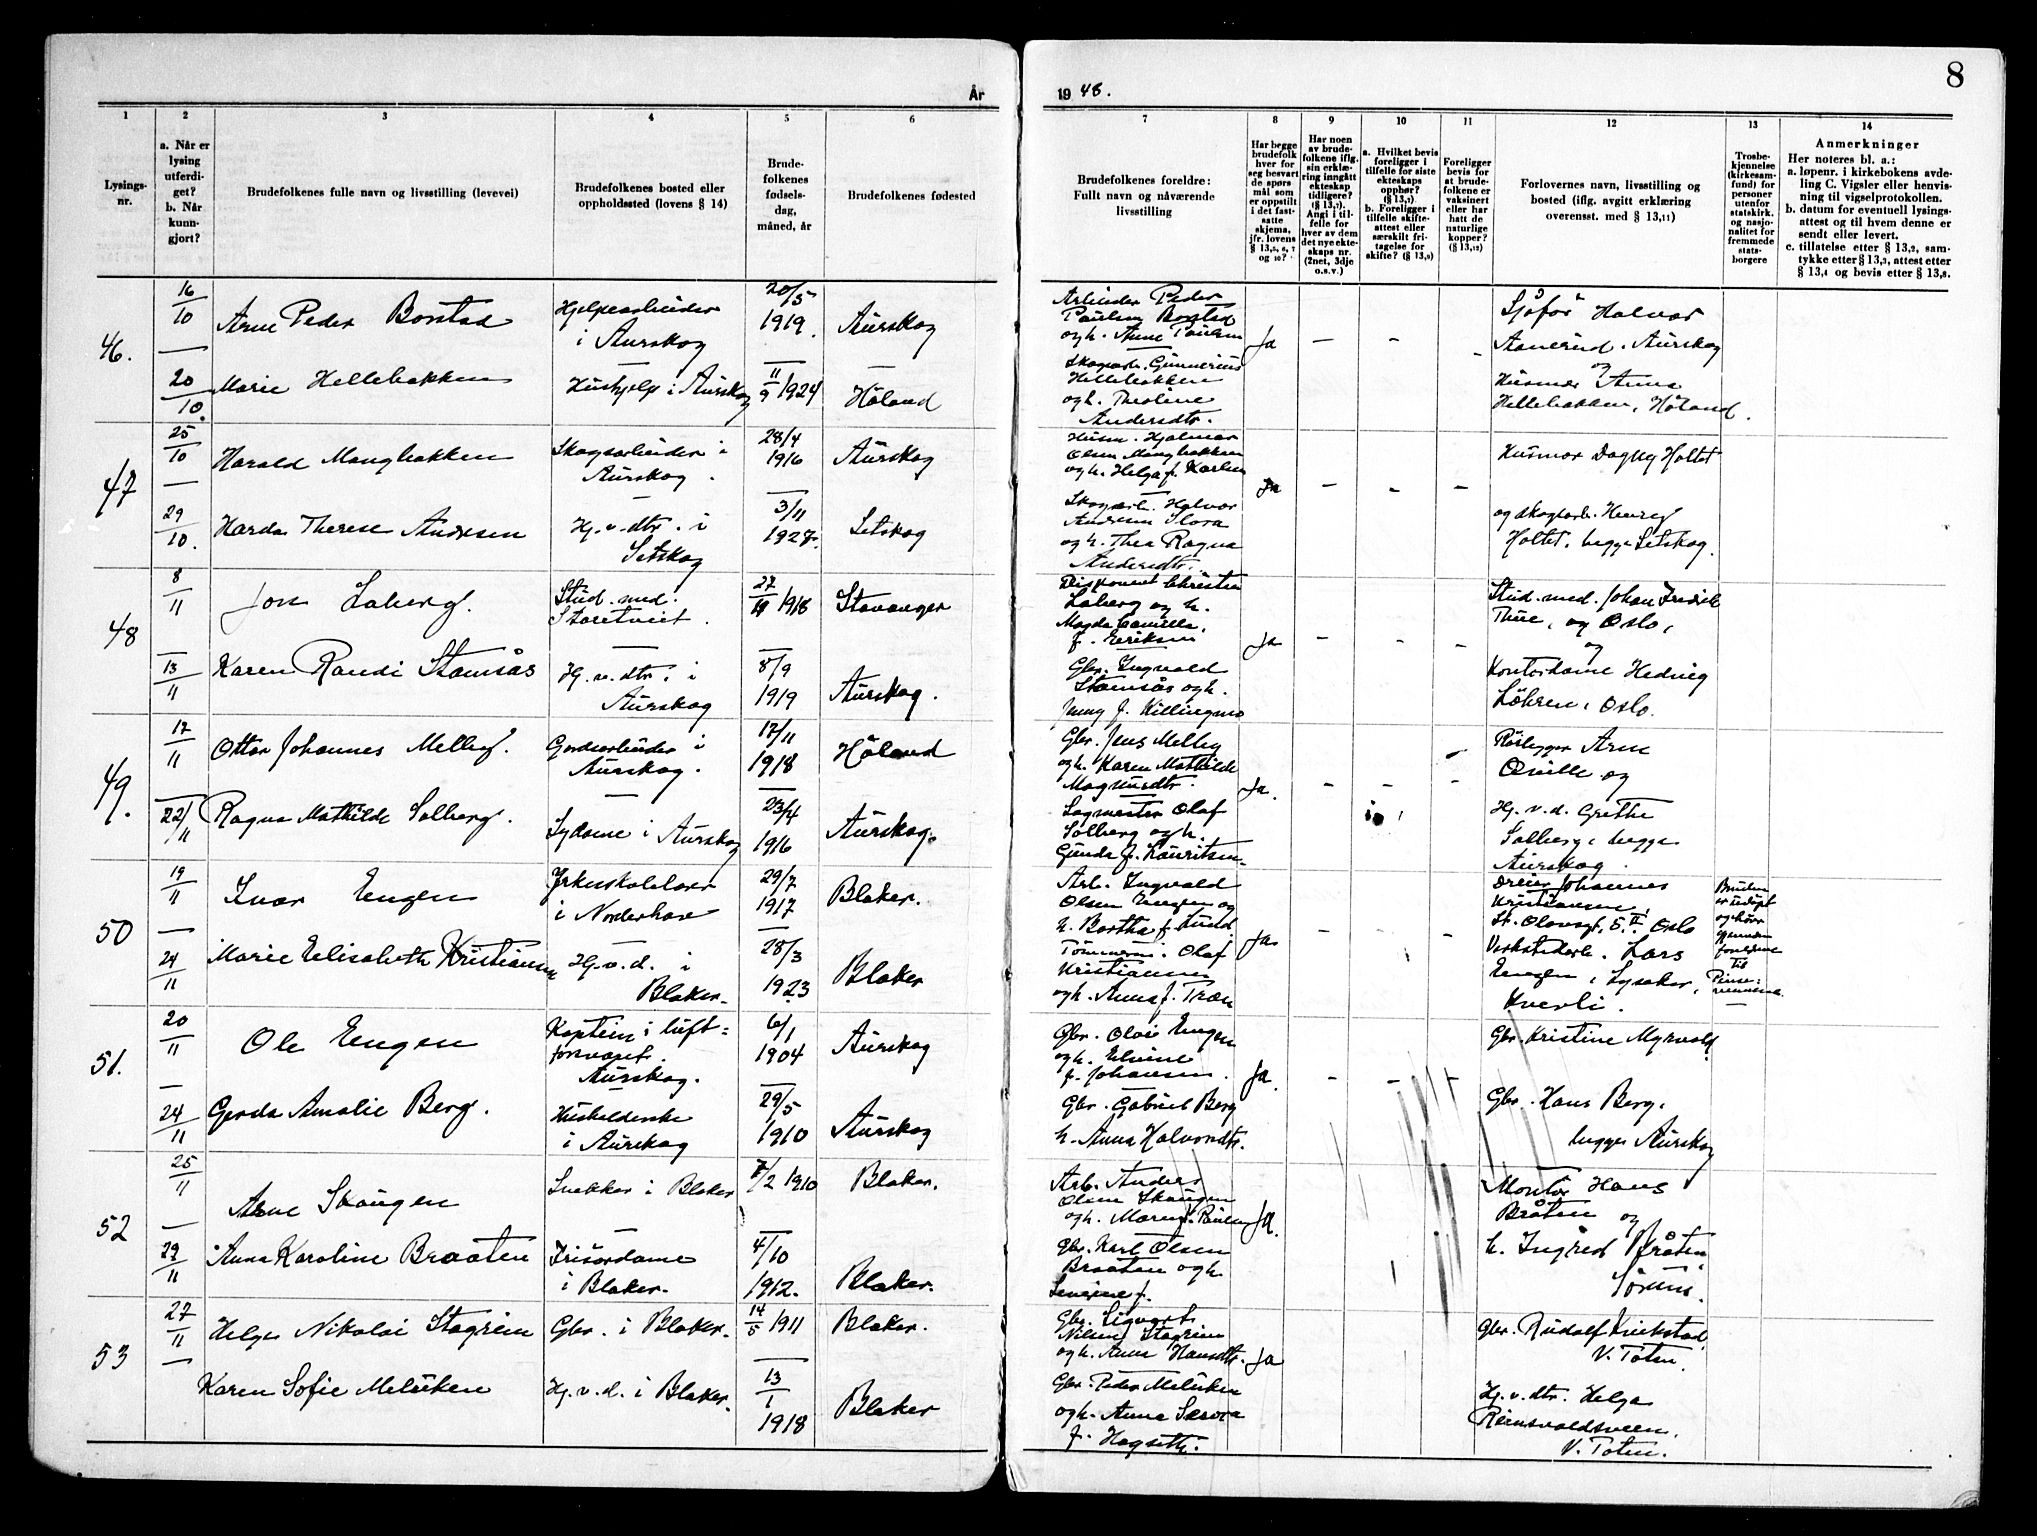 8
År
19 48.
1
2
3
4
5
6
7
8
9
10
11
12
13
14
Lysings-
nr.
a. Når er
lysing
utferdi-
get?
b. Når
kunn-
gjort?
Brudefolkenes fulle navn og livsstilling (levevei)
Brudefolkenes bosted eller
oppholdssted (lovens § 14)
Brude-
folkenes
fødsels-
dag,
måned, år
Brudefolkenes fødested
Brudefolkenes foreldre:
Fullt navn og nåværende
livsstilling
Har begge
brudefolk
hver for
seg besvart
de spørs-
mål som
er oppstilt
i det fast-
satte
skjema,
jfr. lovens
§ 13,5, 6, 7
og 10?
Har noen
av brude-
folkene iflg.
sin erklæ-
ring inngått
ekteskap
tidligere?
(§ 13,7).
Angi i til-
felle for
hver av dem
det nye ekte-
skaps nr.
(2net, 3dje
o.s.v.)
a. Hvilket bevis
foreligger i
tilfelle for siste
ekteskaps
opphør?
(§ 13,7)
b. Foreligger i
tilfelle skifte-
attest eller
særskilt fri-
tagelse for
skifte? (§ 13,9)
Foreligger
bevis for
at brude-
folkene er
vaksinert
eller har
hatt de
naturlige
kopper?
(§ 13,12)
Forlovernes navn, livsstilling og
bosted (iflg. avgitt erklæring
overensst. med § 13,11)
Trosbe-
kjennelse
(kirkesam-
fund) for
personer
utenfor
statskirk.
og nasjo-
nalitet for
fremmede
stats-
borgere
Anmerkninger
Her noteres bl. a.:
a. løpenr. i kirkebokens avde-
ling C. Vigsler eller henvis-
ning til vigselprotokollen.
b. datum for eventuell lysings-
attest og til hvem denne er
sendt eller levert.
c. tillatelse etter § 13,2, sam-
tykke etter § 13,3, attest etter
§ 13,4 og bevis etter § 13,8.
46.
16/10
—
20/10.
Arne Peder Borstad
Hjelpearbeider
i Aurskog
20/5
1919.
Aurskog
Arbeider Peder
Paulsen Borstad
og h. Anne Paulsen
Ja
Sjåfør Halvor
Aanerud. Aurskog
og
Marie Hellebakken
Hushjelp i Aurskog
11/9 1924
Höland
Skogsarb. Gunnerius
Hellebakken
og h. Theoline
Andersdtr.
Husmor Anna
Hellebakken, Höland.
47
25/10
—
29/10.
Harald Mangbakken
Skogsarbeider i
Aurskog.
28/4
1916
Aurskog
Husm. Hjalmar
Olsen Mangbakken
og h. Helga f. Karlsen
Ja
Husmor Dagny Holtet
Harda Therese Andresen
Hj. v. dtr. i
Setskog
3/11
1927.
Setskog
Skogsarb. Halvor
Andresen Flora
og h. Thea Ragna
Andersdtr.
og skogsarb. Henry
Holtet, begge Setskog.
48
8/11
13/11
Jon Laberg.
Stud. med.
Staretveit.
27/11 1918
Stavanger
Disponent Christen
Laberg og h.
Magda Camilla,
f. Eeriksen
Ja
Stud. med. Johan Fredrik
Thue, og Oslo,
og
Karen Randi Stamsås
Hj. v. dtr. i
Aurskog
8/9
1919
Aurskog.
Gbr. Ingvald
Stamsås og h.
Jenny f. Killingmo
Kontordame Hedvig
Löhren, Oslo.
49.
17/11
22/11
Ottar Johannes Melby.
Gardsarbeider i
Aurskog.
17/11
1918
Höland
Gbr. Jens Melby
og h. Karen Mathilde
Magnusdtr.
Ja.
Rörlegger Arne
Qville og
Ragna Mathilde Solberg.
Sydame i Aurskog
23/4
1916
Aurskog.
Sagmester Olaf
Solberg og h.
Gunda f. Lauritsen
Hj. v. d. Grethe
Solberg, begge
Aurskog.
50
19/11
—
24/11
Ivar Engen
Yrkesskolelærer
i Norderhov
29/7
1917
Blaker.
Arb. Ingvald
Olsen Engen og
h. Bertha f. Lund.
Ja
Dreier Johannes
Kristiansen,
St. Olavsgt. 5 II Oslo
Bruden
er utdøpt
og hører
gjennem
foreldrene
til
Pinse-
vennene.
Marie Elisabeth Kristiansen
Hj. v. d. i
Blaker.
28/3
1923
Blaker
Tømmerm. Olaf
Kristiansen
og h. Anna f. Træn
Verkstedarb. Lars
Engen, Lysaker,
51.
20/11
—
24/11
Ole Engen
Kaptein i luft-
forsvaret.
Aurskog.
6/1
1904
Aurskog
Gbr. Olai Engen
og h. Elvine
f. Johansen.
Ja.
Gbr. Kristine Myrvold
Gerda Amalie Berg.
Husholderske
i Aurskog
29/5
1910
Aurskog
Gbr. Gabriel Berg
h. Anna Halvorsdtr.
Gbr. Hans Berg,
begge Aurskog
52
25/11
—
29/11
Arne Skaugen
Snekker i Blaker
7/2 1910
Blaker.
Arb. Anders
Olsen Skaugen
og h. Maren f. Paulsen
Ja.
Montör Hans
Bråten og
Anna Karoline Braaten
Frisördame
i Blaker.
4/10
1912.
Blaker.
Gbr. Karl Olsen
Braaten og h.
Severine f.
h. Ingrid Bråten
Sörum.
53
27/11
—
Helge Nikolai Stagrim
Gbr. i Blaker.
14/5 1911
Blaker.
Gbr. Sigvart
Nilsen Stagrim
og h. Anna Hansdtr.
Ja
Gbr. Rudolf Kvikstad,
V. Toten.
Karen Sofie Melüken
Hj. v. d. i Blaker.
13/1
1918
Blaker
Gbr. Peder Melüken
og h. Anna Særva
f. Hagseth.
Hj. v. dtr. Helga
Reinsvoldsveen,
V. Toten.